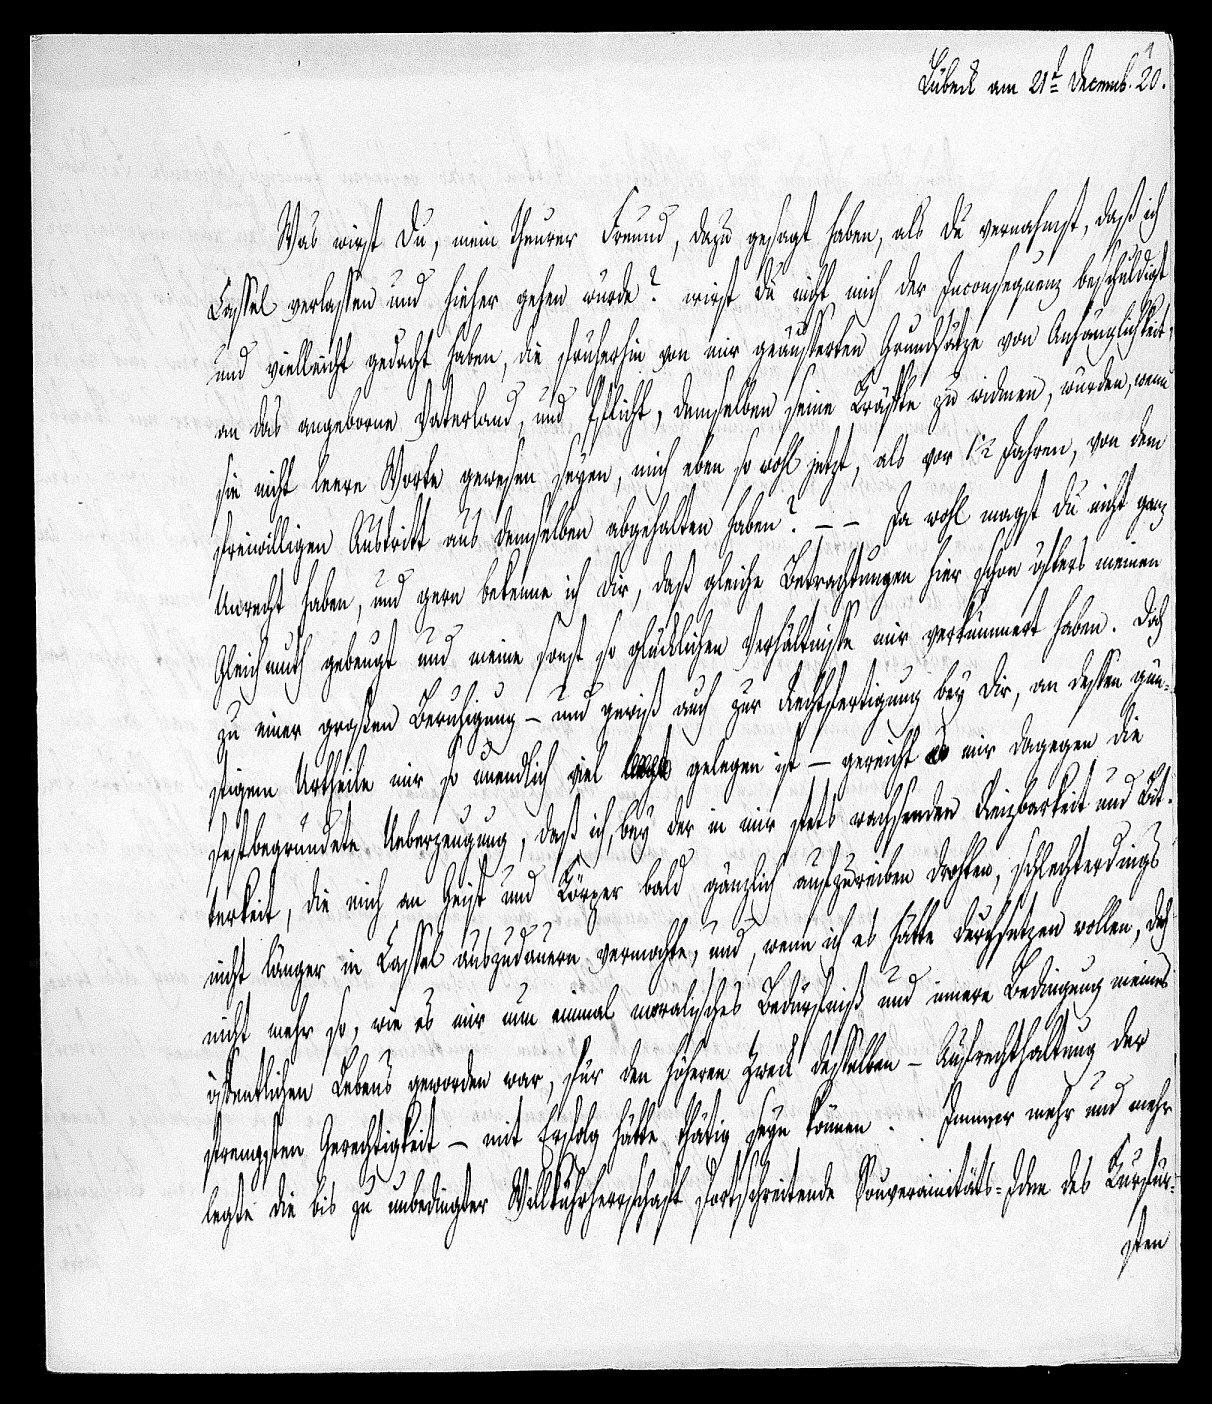 Lübeck am 21t Decemb. 20.
Was wirst Du, mein theurer Freund, dazu gesagt haben, als Du vernahmst, daß ich
Cassel verlassen und hieher gehen würde? wirst Du nicht mich der Inconsequenz beschuldigt
und vielleicht gedacht haben, die früherhin von mir geäusserten Grundsätze von Anhänglichkeit
an das angeborne Vaterland, und Pflicht, demselben seine Kräfte zu widmen, würden, wenn
sie nicht leere Worte gewesen seyen, mich eben so wohl jetzt, als vor 1½ Jahren, von dem
freiwilligen Austritt aus demselben abgehalten haben? — — Ja wohl magst Du nicht ganz
Unrecht haben, und gern bekenne ich Dir, daß gleiche Betrachtungen hier schon öfters meinen
Gleichmuth gebeugt und meine sonst so glücklichen Verhältnisse mir verkümmert haben. Doch
zu einer großen Beruhigung — und gewiß auch zur Rechtfertigung bey Dir, an dessen gün-
stigem Urtheile mir so unendlich viel gelegen ist — gereicht es mir dagegen die
festbegründete Ueberzeugung, daß ich, bey der in mir stets wachsenden Reizbarkeit und Bit-
terkeit, die mich an Geist und Körper bald gänzlich aufzureiben drohten, schlechterdings
nicht länger in Cassel auszudauern vermochte, und, wenn ich es hätte durchsetzen wollen, doch
nicht mehr so, wie es mir nun einmal moralisches Bedürfniß und innere Bedingung meines
öffentlichen Lebens geworden war, für den höheren Zweck desselben — Aufrechthaltung der
strengsten Gerechtigkeit — mit Erfolg hätte thätig seyn können. Immer mehr und mehr
legte die bis zu unbedingter Willkührherrschaft fortschreitende Souverainitäts-Idee des Kurfür-
sten